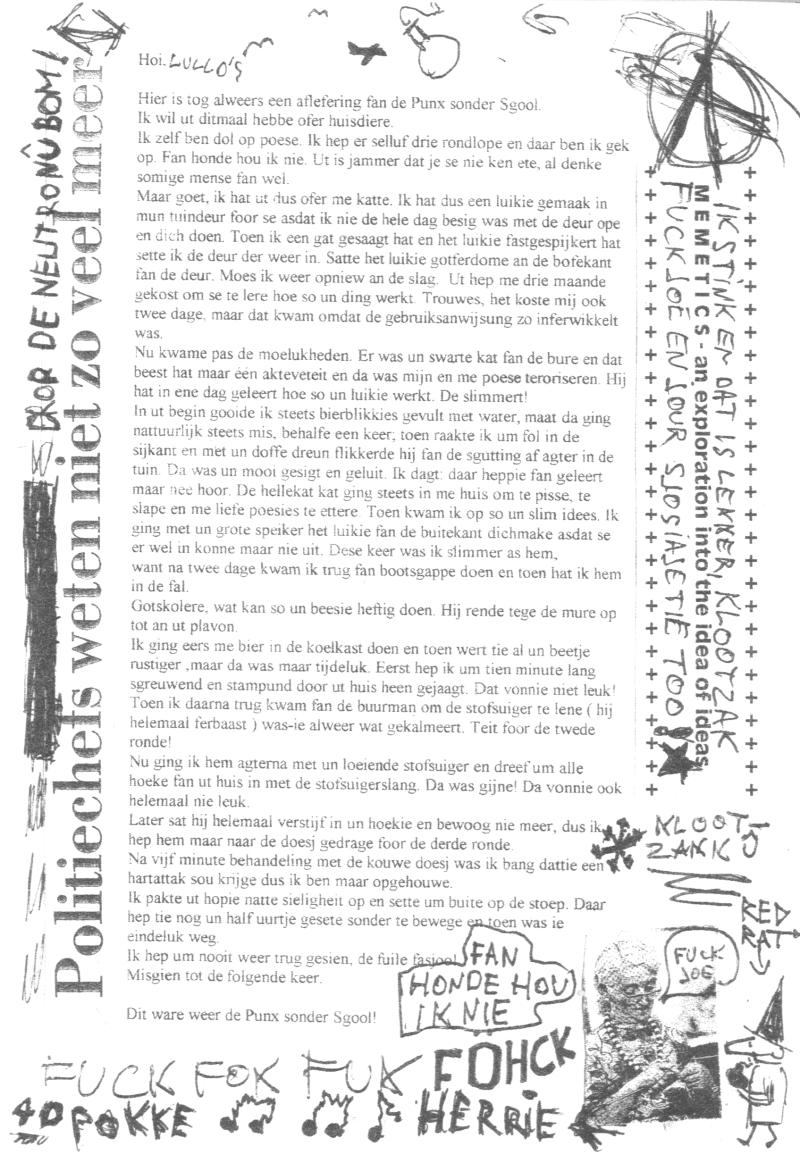 Hoi. LULLO'S
Hier is tog alweers een aflefering fan de Punx sonder Sgool.
Ik wil ut ditmaal hebbe ofer huisdiere.
Ik zelf ben dol op poese. Ik hep er selluf drie rondlope en daar ben ik gek
op. Fan honde hou ik nie. Ut is jammer dat je se nie ken ete, al denke
somige mense fan wel.
Maar goet, ik hat ut dus ofer me katte. Ik hat dus een luikie gemaak in
mun tuindeur foor se asdat ik nie de hele dag besig was met de deur ope
en dich doen. Toen ik een gat gesaagt hat en het luikie fastgespijkert hat
sette ik de deur der weer in. Satte het luikie gotferdome an de bofekant
fan de deur. Moes ik weer opniew an de slag. Ut hep me drie maande
gekost om se te lere hoe so un ding werkt. Trouwes, het koste mij ook
twee dage, maar dat kwam omdat de gebruiksanwijsung zo inferwikkelt
was.
Nu kwame pas de moelukheden. Er was un swarte kat fan de bure en dat
beest hat maar één akteveteit en da was mijn en me poese teroriseren. Hij
hat in ene dag geleert hoe so un luikie werkt. De slimmert!
In ut begin gooide ik steets bierblikkies gevult met water, maat da ging
nattuurlijk steets mis, behalfe een keer, toen raakte ik um fol in de
sijkant en met un doffe dreun flikkerde hij fan de sgutting af agter in de
tuin. Da was un mooi gesigt en geluit. Ik dagt: daar heppie fan geleert
maar nee hoor. De hellekat kat ging steets in me huis om te pisse, te
slape en me liefe poesies te ettere. Toen kwam ik op so un slim idees. Ik
ging met un grote speiker het luikie fan de buitekant dichmake asdat se
er wel in konne maar nie uit. Dese keer was ik slimmer as hem,
want na twee dage kwam ik trug fan bootsgappe doen en toen hat ik hem
in de fal.
Gotskolere, wat kan so un beesie heftig doen. Hij rende tege de mure op
tot an ut plavon.
Ik ging eers me bier in de koelkast doen en toen wert tie al un beetje
rustiger ,maar da was maar tijdeluk. Eerst hep ik um tien minute lang
sgreuwend en stampund door ut huis heen gejaagt. Dat vonnie niet leuk!
Toen ik daarna trug kwam fan de buurman om de stofsuiger te lene ( hij
helemaal ferbaast ) was-ie alweer wat gekalmeert. Teit foor de twede
ronde!
Nu ging ik hem agterna met un loeiende stofsuiger en dreef um alle
hoeke fan ut huis in met de stofsuigerslang. Da was gijne! Da vonnie ook
helemaal nie leuk.
Later sat hij helemaal verstijf in un hoekie en bewoog nie meer, dus ik
hep hem maar naar de doesj gedrage foor de derde ronde.
Na vijf minute behandeling met de kouwe doesj was ik bang dattie een
hartattak sou krijge dus ik ben maar opgehouwe.
Ik pakte ut hopie natte sieligheit op en sette um buite op de stoep. Daar
hep tie nog un half uurtje gesete sonder te bewege en toen was ie
eindeluk weg.
Ik hep um nooit weer trug gesien, de fuile fasjool
Misgien tot de folgende keer.
Dit ware weer de Punx sonder Sgool!
DROP DE NEUTRONÛBOM!
Politiechefs weten niet zo veel meer
IK STINK EN DAT IS LEKKER, KLOOTZAK
MEMETICS - an exploration into the idea of ideas
FUCK JOE EN JOUR SJOSIAJETIE TOO!
KLOOT-
ZAKK
RED
RAT
FUCK
JOE
FAN
HONDE HOU
IK NIE
FUCK FOK FUK FÖHCK
40 FOKKE HERRIE